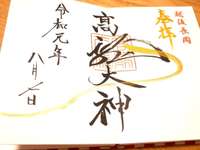 越後長岡
奉拝
高龍大神
令和元年
八月七日